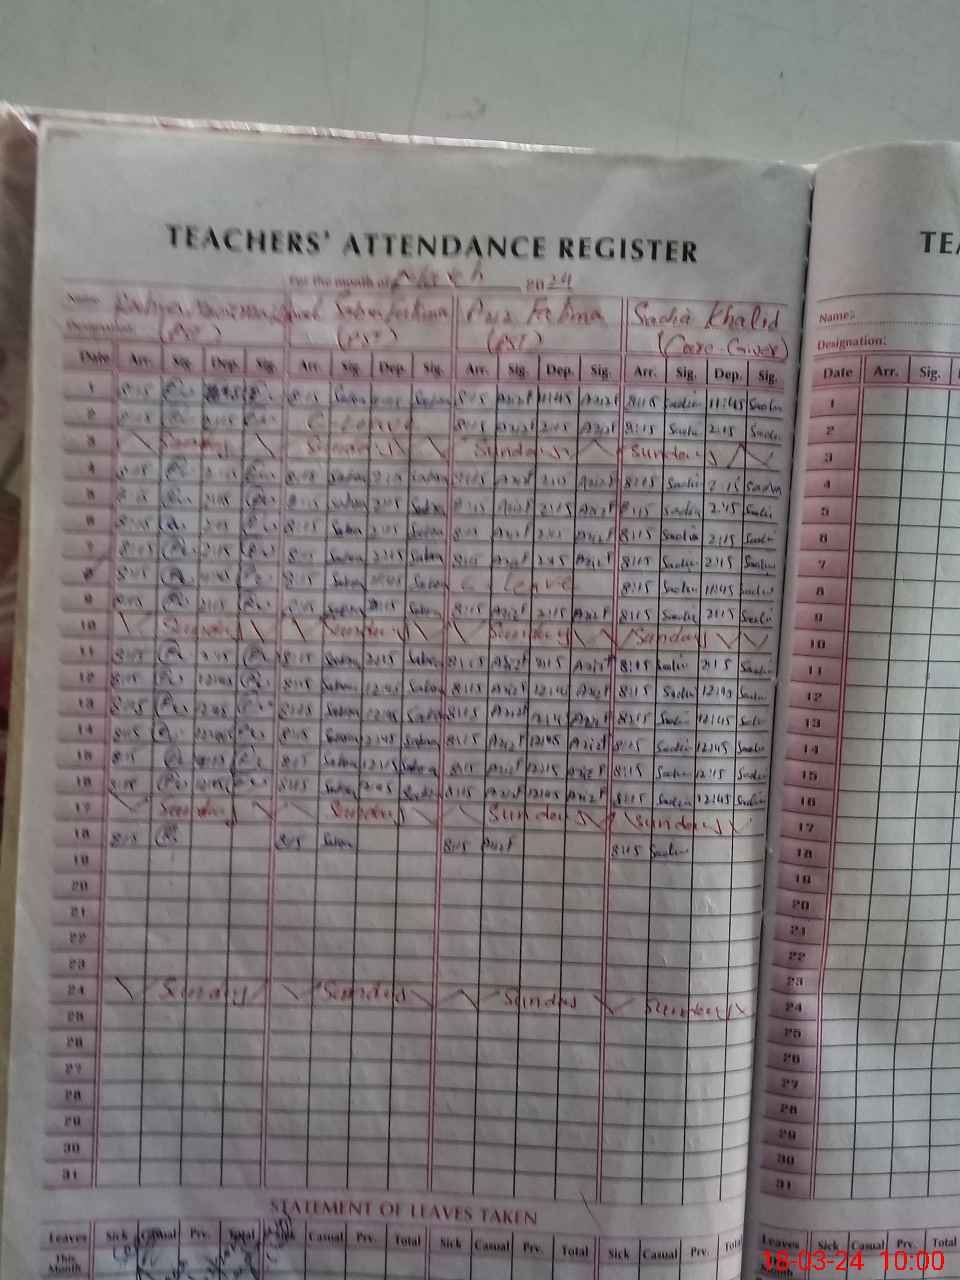 TEACHERS' ATTENDANCE REGISTER TEA
For the month of March 2024
Name: Fatima Sadia Khalid Name:
Designation: (PST) (Care-Giver) Designation:
Date Arr. Sig. Dep. Sig. Arr. Sig. Dep. Sig. Arr. Sig. Dep. Sig. Arr. Sig. Dep. Sig. Date Arr. Sig.
1 8:15 8:15 Sabra 8:15 Aziz F 11:45 Aziz F 8:15 Sadia 11:45 Sadia 1
2 8:15 C. Leave 8:15 Aziz F 2:15 Aziz F 8:15 Sadia 2:15 Sadia 2
3 Sunday Sunday Sunday Sunday 3
4 8:15 2:15 8:15 Sabra 2:15 Sabra 8:15 Aziz F 2:15 Aziz F 8:15 Sadia 2:15 Sadia 4
5 8:15 2:15 8:15 Sabra 2:15 Sabra 8:15 Aziz F 2:15 Aziz F 8:15 Sadia 2:15 Sadia 5
6 8:15 2:15 8:15 Sabra 2:15 Sabra 8:15 Aziz F 2:15 Aziz F 8:15 Sadia 2:15 Sadia 6
7 8:15 2:15 8:15 Sabra 2:15 Sabra 8:15 Aziz F 2:15 Aziz F 8:15 Sadia 2:15 Sadia 7
8 8:15 8:15 Sabra 11:45 Sabra C. Leave 8:15 Sadia 11:45 Sadia 8
9 8:15 2:15 8:15 Sabra 2:15 Sabra 8:15 Aziz F 2:15 Aziz F 8:15 Sadia 2:15 Sadia 9
10 Sunday Sunday Sunday Sunday 10
11 8:15 2:15 8:15 Sabra 2:15 Sabra 8:15 Aziz F 2:15 Aziz F 8:15 Sadia 2:15 Sadia 11
12 8:15 12:45 8:15 Sabra 12:45 Sabra 8:15 Aziz F 12:45 Aziz F 8:15 Sadia 12:45 Sadia 12
13 8:15 12:45 8:15 Sabra 12:45 Sabra 8:15 Aziz F 12:45 Aziz F 8:15 Sadia 12:45 Sadia 13
14 8:15 12:45 8:15 Sabra 12:45 Sabra 8:15 Aziz F 12:45 Aziz F 8:15 Sadia 12:45 Sadia 14
15 8:15 12:15 8:15 Sabra 12:15 Sabra 8:15 Aziz F 12:15 Aziz F 8:15 Sadia 12:15 Sadia 15
16 8:15 12:45 8:15 Sabra 12:45 Sabra 8:15 Aziz F 12:45 Aziz F 8:15 Sadia 12:45 Sadia 16
17 Sunday Sunday Sunday Sunday 17
18 8:15 8:15 Sabra 8:15 Aziz F 8:15 Sadia 18
19 19
20 20
21 21
22 22
23 23
24 Sunday Sunday Sunday Sunday 24
25 25
26 26
27 27
28 28
29 29
30 30
31 31
STATEMENT OF LEAVES TAKEN
Leaves Sick Casual Prv. Total Sick Casual Prv. Total Sick Casual Prv. Total Sick Casual Prv. Total Leaves Sick Casual Prv. Total
This Month This Month
18-03-24 10:00